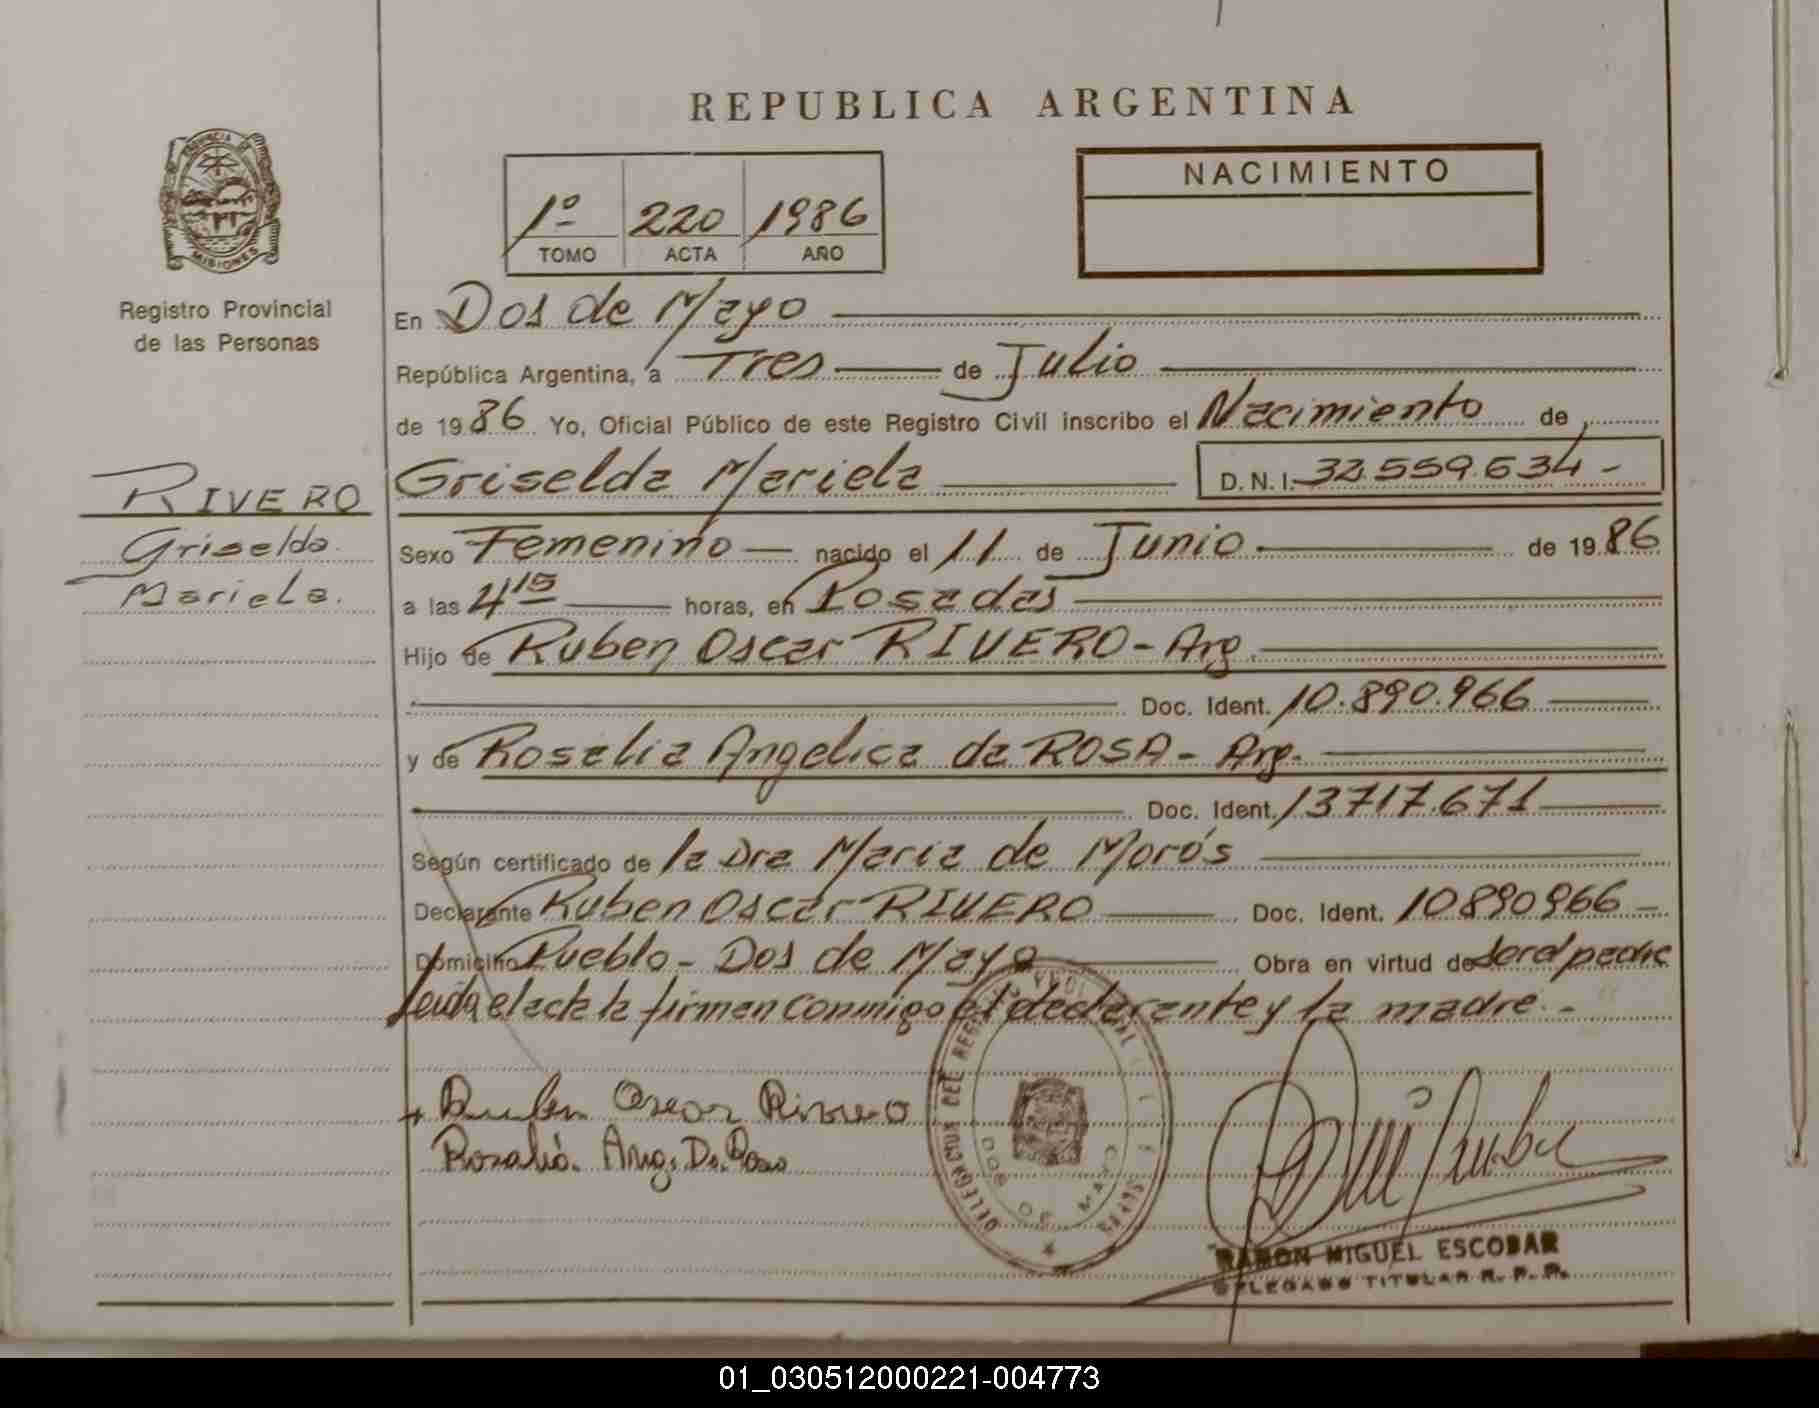 REPUBLICA ARGENTINA
PROVINCIA DE
MISIONES
Registro Provincial
de las Personas
1º 220 1986
TOMO ACTA AÑO
NACIMIENTO
En Dos de Mayo
República Argentina, a Tres de Julio
de 1986 Yo, Oficial Público de este Registro Civil inscribo el Nacimiento de
RIVERO
Griselda
Mariela.
Griselda Mariela D.N.I. 32.559.634-
Sexo Femenino nacido el 11 de Junio de 1986
a las 4 15 horas, en Posadas
Hijo de Ruben Oscar RIVERO - Arg.
Doc. Ident. 10.890.966
y de Rosalia Angelica da ROSA - Arg.
Doc. Ident. 13717.671
Según certificado de la Dra Maria de Morós
Declarante Ruben Oscar RIVERO Doc. Ident. 10890966 -
Domicilio Pueblo - Dos de Mayo Obra en virtud de ser el padre
leida el acta la firman conmigo el declarante y la madre. -
Ruben Oscar Rivero
Rosalia. Ang. Da Rosa
DOS DE MAYO
RAMON MIGUEL ESCOBAR
DELEGADO TITULAR R. P. P.
01_030512000221-004773